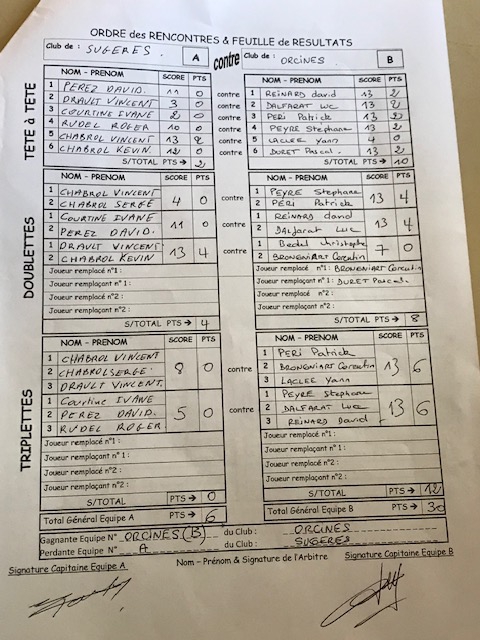 ORDRE des RENCONTRES & FEUILLE de RESULTATS
Club de : SUGERES. A contre Club de : ORCINES B
TÊTE à TÊTE
NOM - PRENOM SCORE PTS NOM - PRENOM SCORE PTS
1 PEREZ DAVID. 11 0 contre 1 REINARD david 13 2
2 DRAULT VINCENT 3 0 contre 2 DALFARAT LUC 13 2
3 COURTINE IVANE 2 0 contre 3 PERI Patrick 13 2
4 RUDEL ROGER 10 0 contre 4 PEYRE Stephane 13 2
5 CHABROL VINCENT 13 2 contre 5 LACLEE Yann 4 0
6 CHABROL KEVIN. 12 0 contre 6 DURET Pascal. 13 2
S/TOTAL PTS → 2 S/TOTAL PTS → 10
DOUBLETTES
NOM - PRENOM SCORE PTS NOM - PRENOM SCORE PTS
1 CHABROL VINCENT 4 0 contre 1 PEYRE Stephane 13 4
2 CHABROL SERGE 2 PERI Patrick
1 COURTINE IVANE 11 0 contre 1 REINARD david 13 4
2 PEREZ DAVID. 2 DALFARAT LUC
1 DRAULT VINCENT 13 4 contre 1 Bedel Christophe 7 0
2 CHABROL KEVIN 2 BRONGNIART Corentin
Joueur remplacé n°1 : Joueur remplacé n°1 : BRONGNIART Corentin
Joueur remplaçant n°1 : Joueur remplaçant n°1 : DURET Pascal.
Joueur remplacé n°2 : Joueur remplacé n°2 :
Joueur remplaçant n°2 : Joueur remplaçant n°2 :
S/TOTAL PTS → 4 S/TOTAL PTS → 8
TRIPLETTES
NOM - PRENOM SCORE PTS NOM - PRENOM SCORE PTS
1 CHABROL VINCENT 1 PERI Patrick
2 CHABROL SERGE. 8 0 contre 2 BRONGNIART Corentin 13 6
3 DRAULT VINCENT. 3 LACLEE Yann
1 Courtine IVANE 1 PEYRE Stephane
2 PEREZ DAVID. 5 0 contre 2 DALFARAT LUC 13 6
3 RUDEL ROGER 3 REINARD David
Joueur remplacé n°1 : Joueur remplacé n°1 :
Joueur remplaçant n°1 : Joueur remplaçant n°1 :
Joueur remplacé n°2 : Joueur remplacé n°2 :
Joueur remplaçant n°2 : Joueur remplaçant n°2 :
S/TOTAL PTS → 0 S/TOTAL PTS → 12
Total Général Equipe A PTS → 6 Total Général Equipe B PTS → 30
Gagnante Equipe N° ORCINES (B) du Club : ORCINES
Perdante Equipe N° A du Club : SUGERES
Signature Capitaine Equipe A Nom - Prénom & Signature de l'Arbitre Signature Capitaine Equipe B